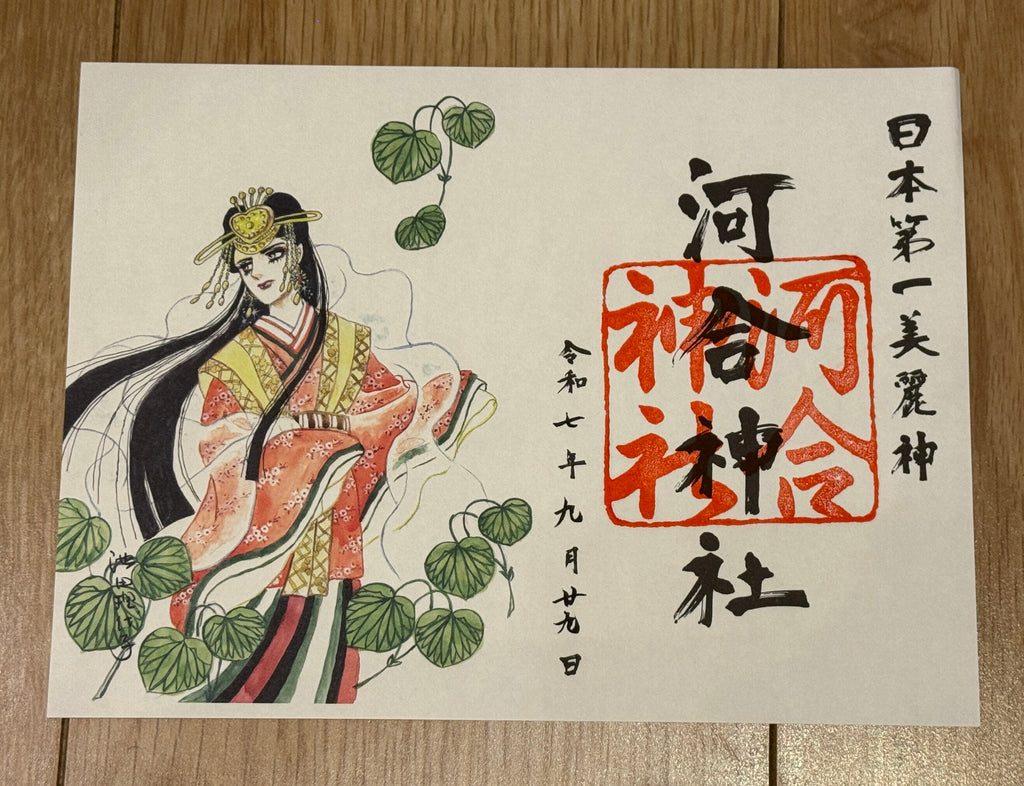 日本第一美麗神
河合神社
河合神社
令和七年九月廿九日
池田理代子